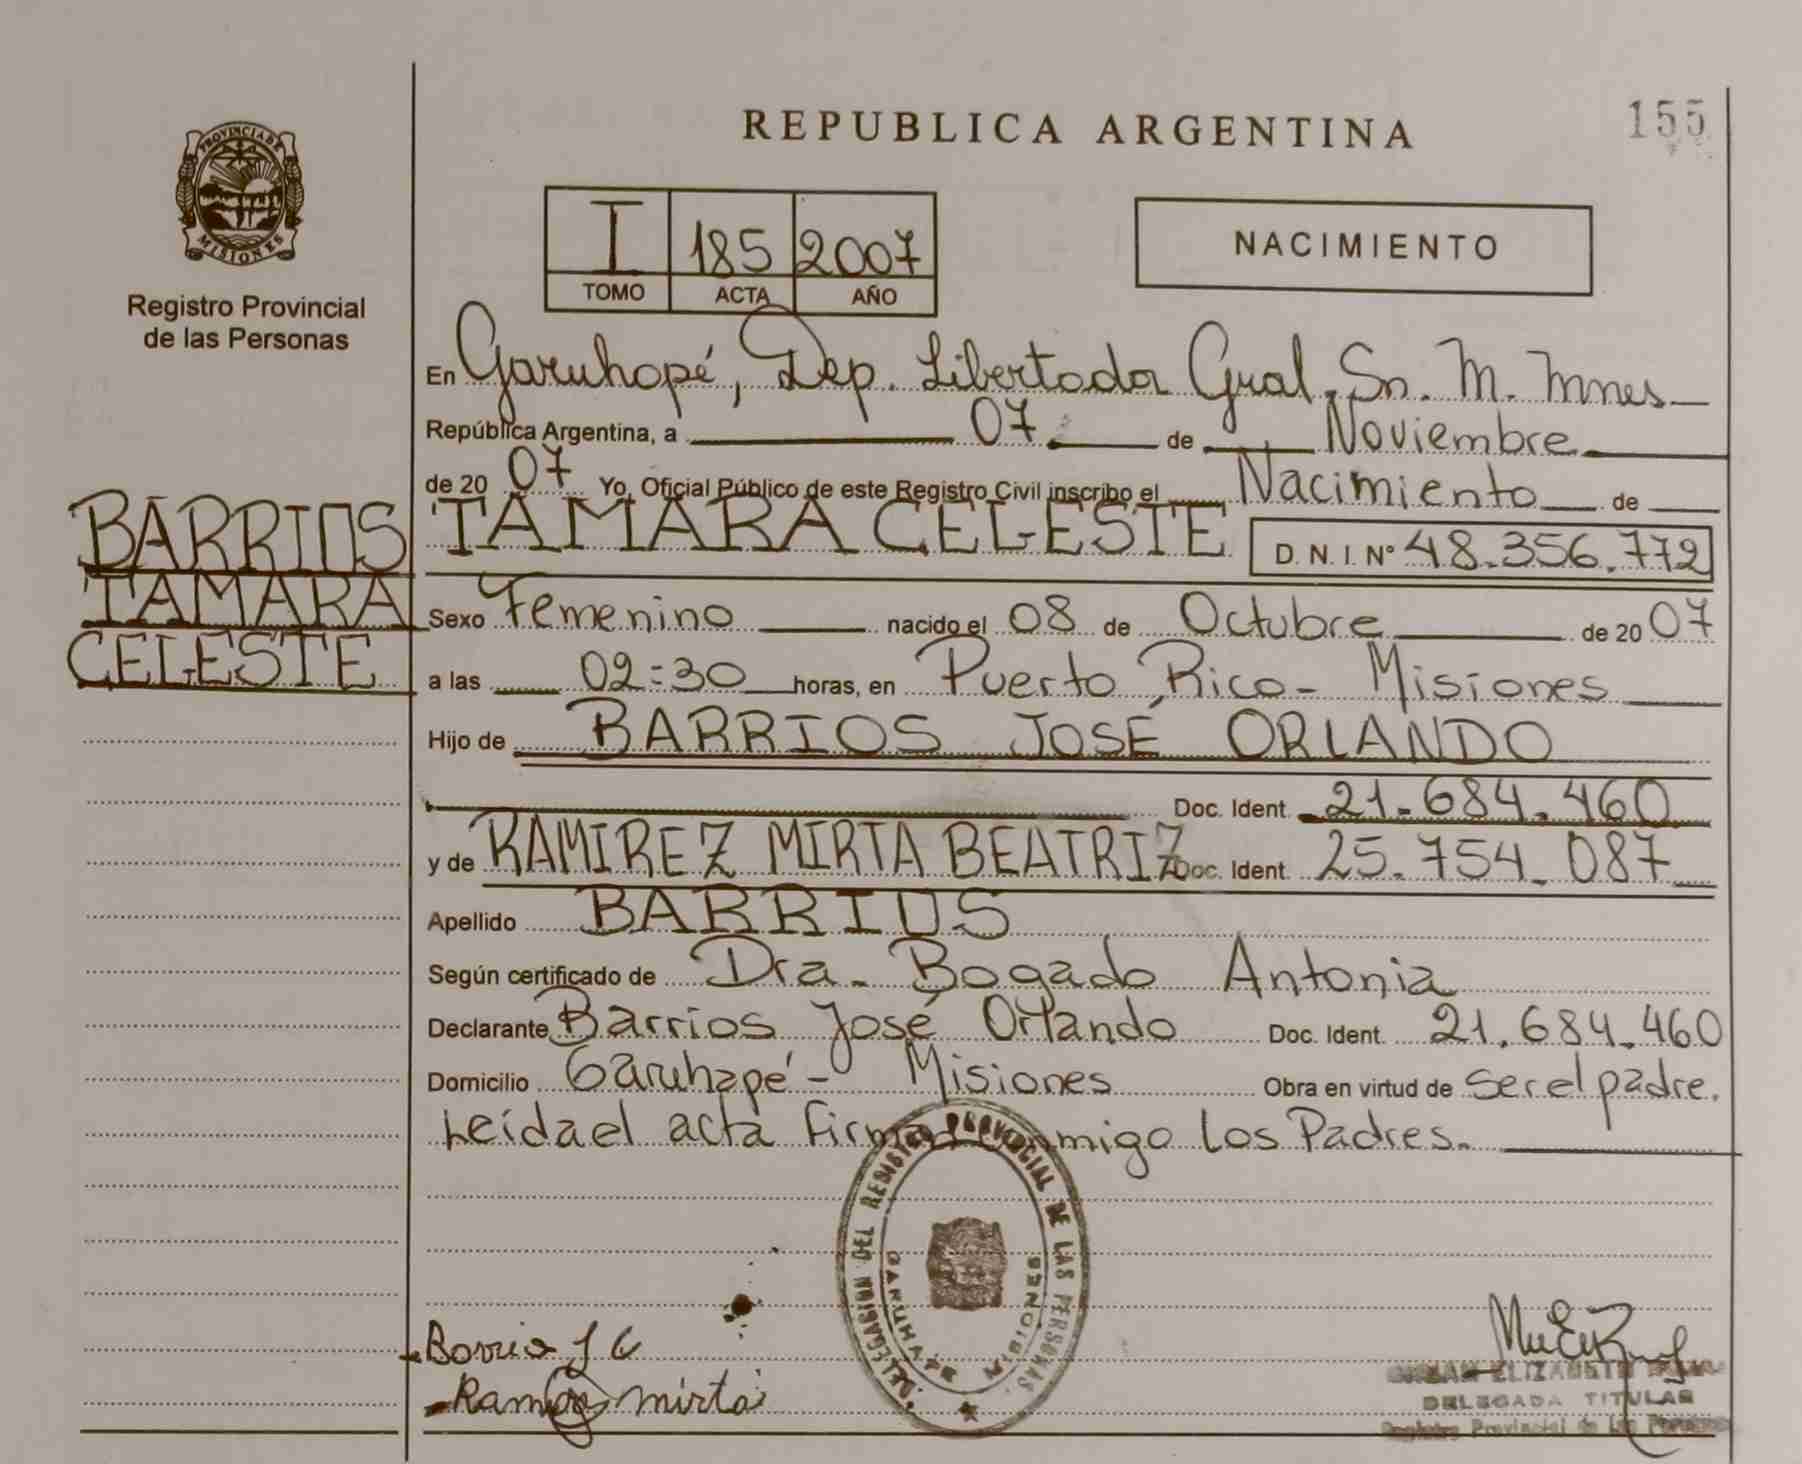 PROVINCIA DE
MISIONES
Registro Provincial
de las Personas
BARRIOS
TAMARA
CELESTE
REPUBLICA ARGENTINA
155
I 185 2007
TOMO ACTA AÑO
NACIMIENTO
En Garuhapé, Dep. Libertador Gral. Sn. M. Mnes
República Argentina, a 07 de Noviembre
de 20 07 Yo, Oficial Público de este Registro Civil inscribo el Nacimiento de
TAMARA CELESTE D. N. I. Nº 48.356.772
Sexo Femenino nacido el 08 de Octubre de 20 07
a las 02:30 horas, en Puerto Rico - Misiones
Hijo de BARRIOS JOSÉ ORLANDO
Doc. Ident. 21.684.460
y de RAMIREZ MIRTA BEATRIZ Doc. Ident. 25.754.087
Apellido BARRIOS
Según certificado de Dra. Bogado Antonia
Declarante Barrios José Orlando Doc. Ident. 21.684.460
Domicilio Garuhapé - Misiones Obra en virtud de ser el padre.
Leída el acta firman conmigo los Padres.
DELEGACION DEL REGISTRO PROVINCIAL DE LAS PERSONAS
GARUHAPE MISIONES
Barrio J
Ramirez mirta
ELIZABETH
DELEGADA TITULAR
Registro Provincial de las Personas